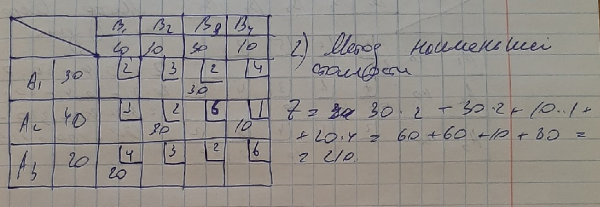 B₁ B₂ B₃ B₄
20 10 30 10
A₁ 30 2 3 2 4
30
A₂ 40 3 2 6 1
30 10
A₃ 20 4 3 2 6
20
2) Метод наименьшей
стоимости
Z = 30·2 + 30·2 + 10·1 +
+ 20·4 = 60 + 60 + 10 + 80 =
= 210